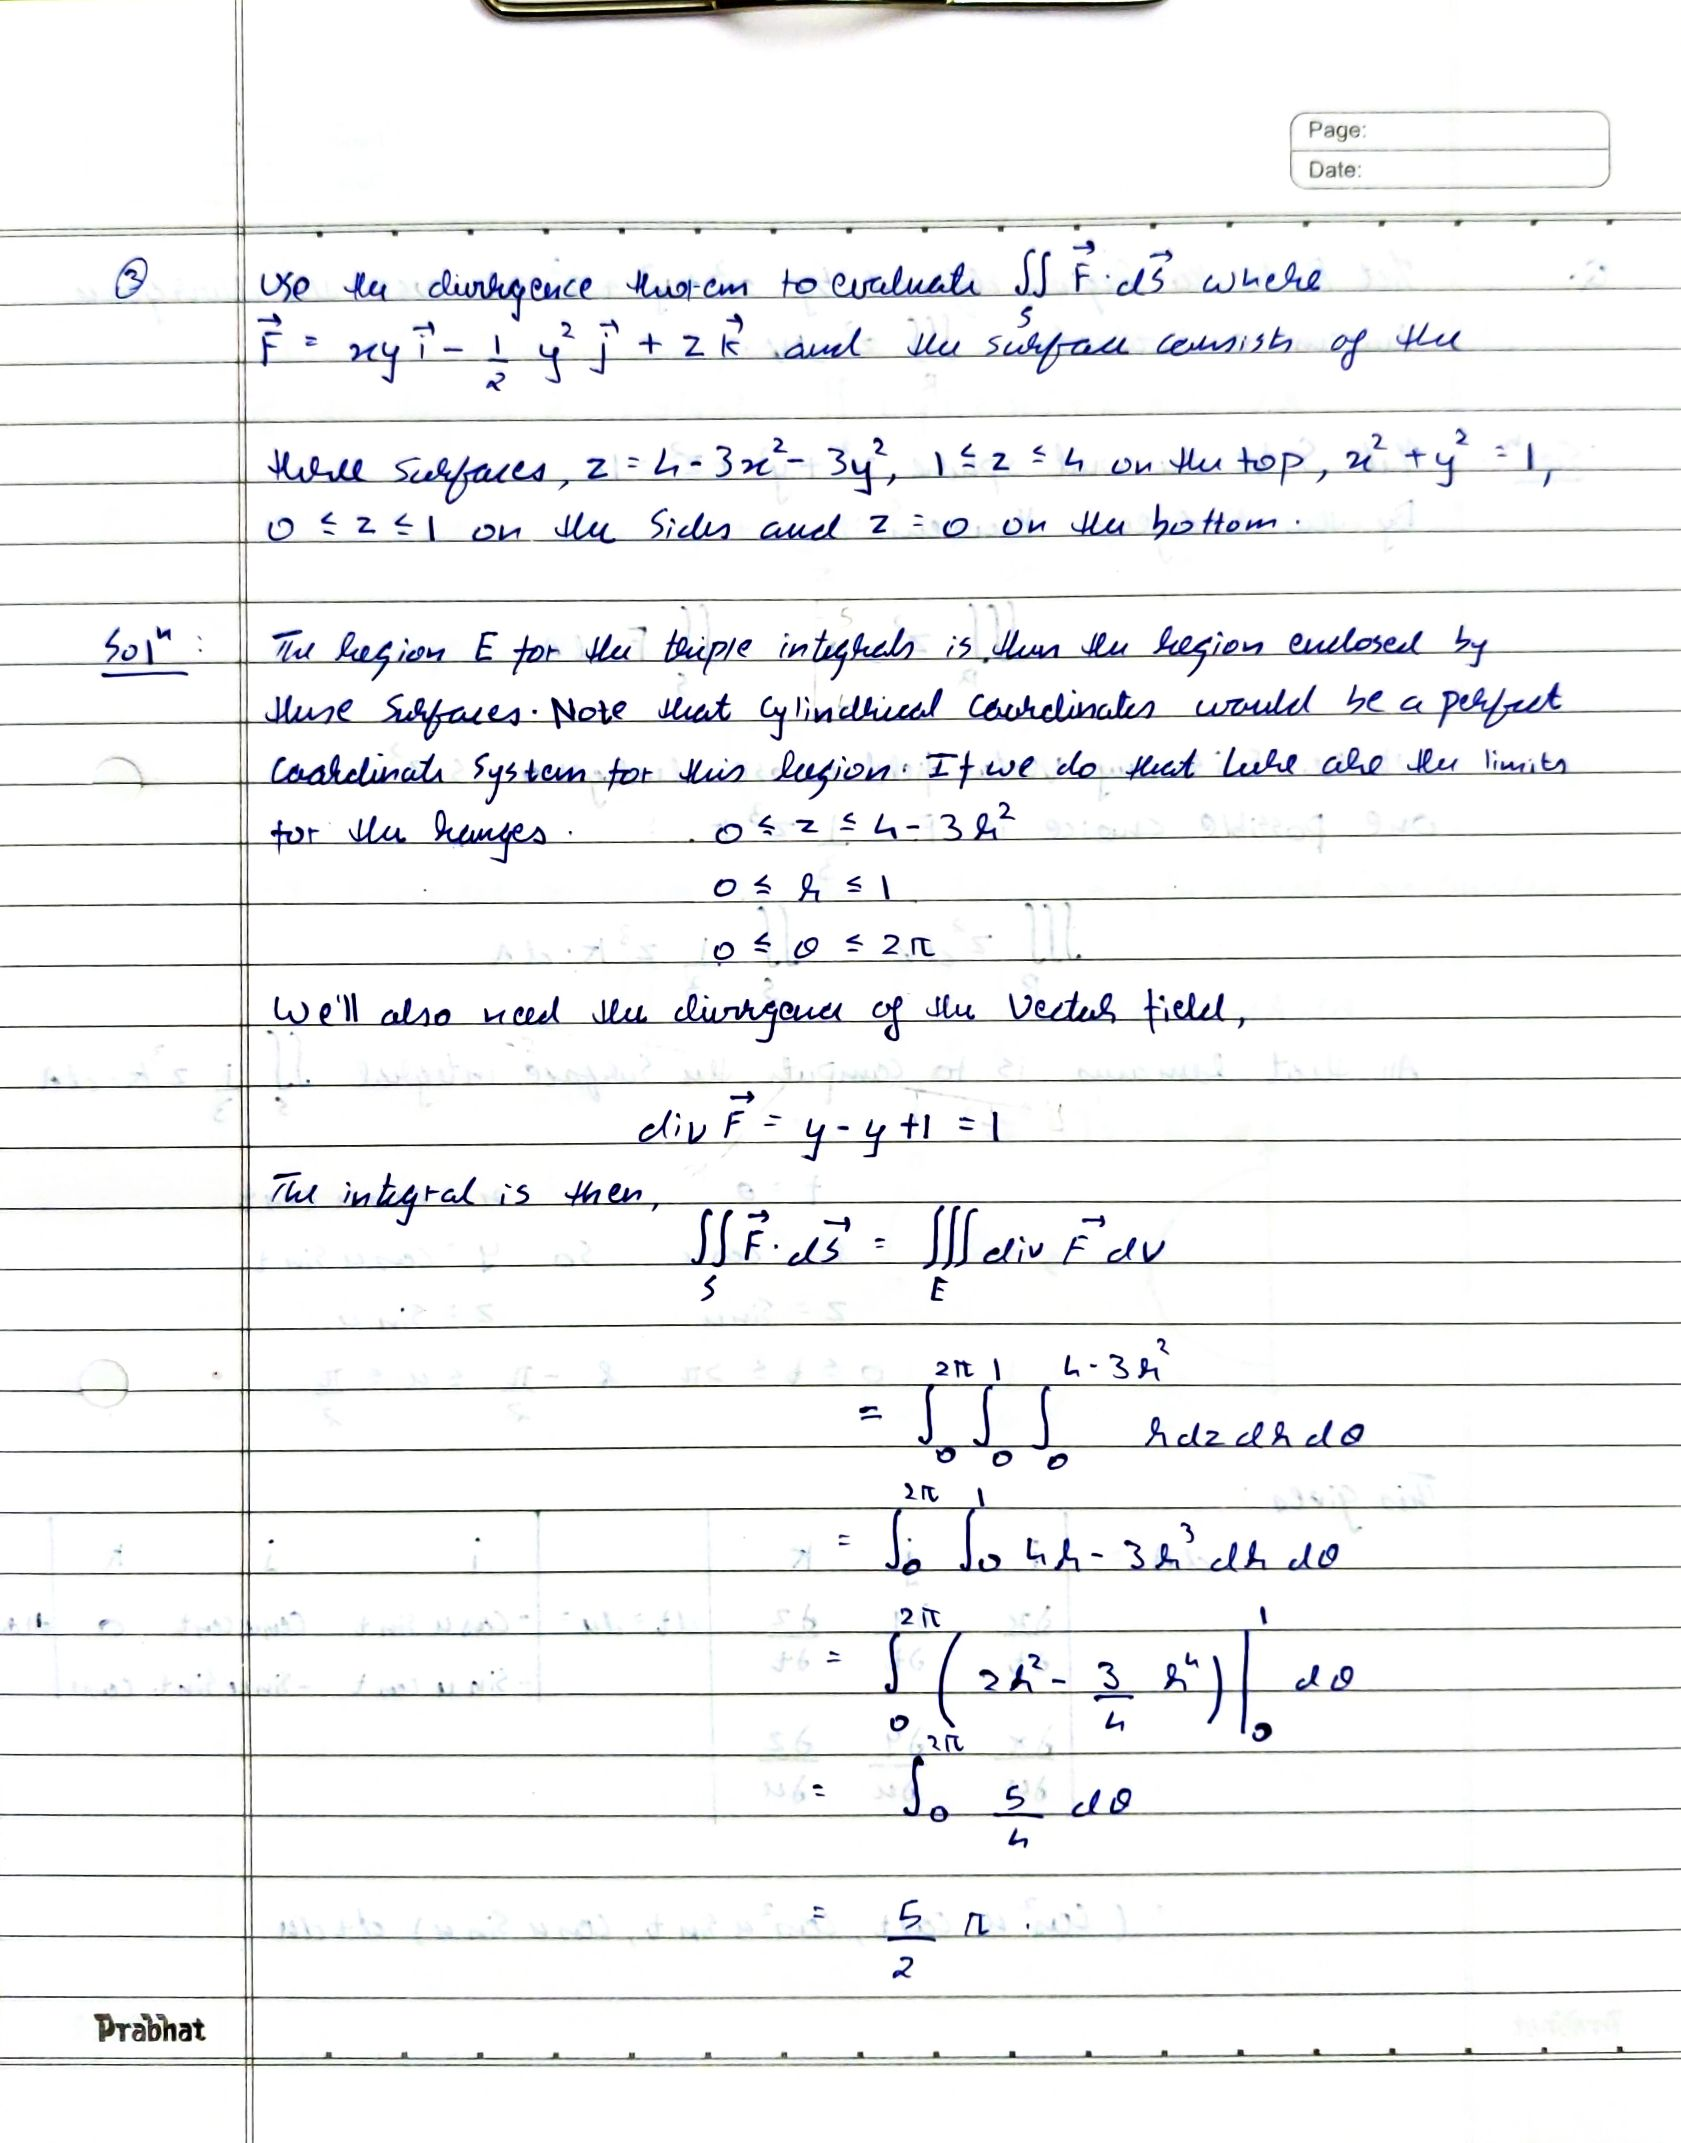 Page:
Date:
③ Use the divergence theorem to evaluate ∬_S F⃗·dS⃗ where
F⃗ = xy i⃗ - 1/2 y² j⃗ + z k⃗ and the surface consists of the
three surfaces, z = 4 - 3x² - 3y², 1 ≤ z ≤ 4 on the top, x² + y² = 1,
0 ≤ z ≤ 1 on the sides and z = 0 on the bottom.
Solⁿ : The region E for the triple integrals is then the region enclosed by
these surfaces. Note that cylindrical coordinates would be a perfect
coordinate system for this region. If we do that here are the limits
for the ranges. 0 ≤ z ≤ 4 - 3r²
0 ≤ r ≤ 1
0 ≤ θ ≤ 2π
We'll also need the divergence of the vector field,
div F⃗ = y - y + 1 = 1
The integral is then,
∬_S F⃗·dS⃗ = ∭_E div F⃗ dv
= ∫_0^{2π} ∫_0^1 ∫_0^{4-3r²} r dz dr dθ
= ∫_0^{2π} ∫_0^1 4r - 3r³ dr dθ
= ∫_0^{2π} (2r² - 3/4 r⁴)|_0^1 dθ
= ∫_0^{2π} 5/4 dθ
= 5/2 π.
Prabhat